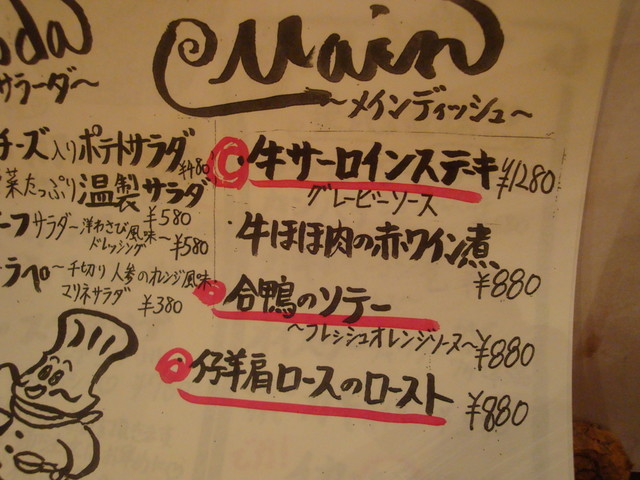 サラーダ～
チーズ入りポテトサラダ
¥480
菜たっぷり温製サラダ
¥580
ーフサラダ～洋わさび風味～
ドレッシング ¥580
ラペ～千切り人参のオレンジ風味
マリネサラダ ¥380
Main
～メインディッシュ～
牛サーロインステーキ ¥1280
グレービーソース
牛ほほ肉の赤ワイン煮
¥880
合鴨のソテー
～フレッシュオレンジソース～ ¥880
仔羊肩ロースのロースト ¥880